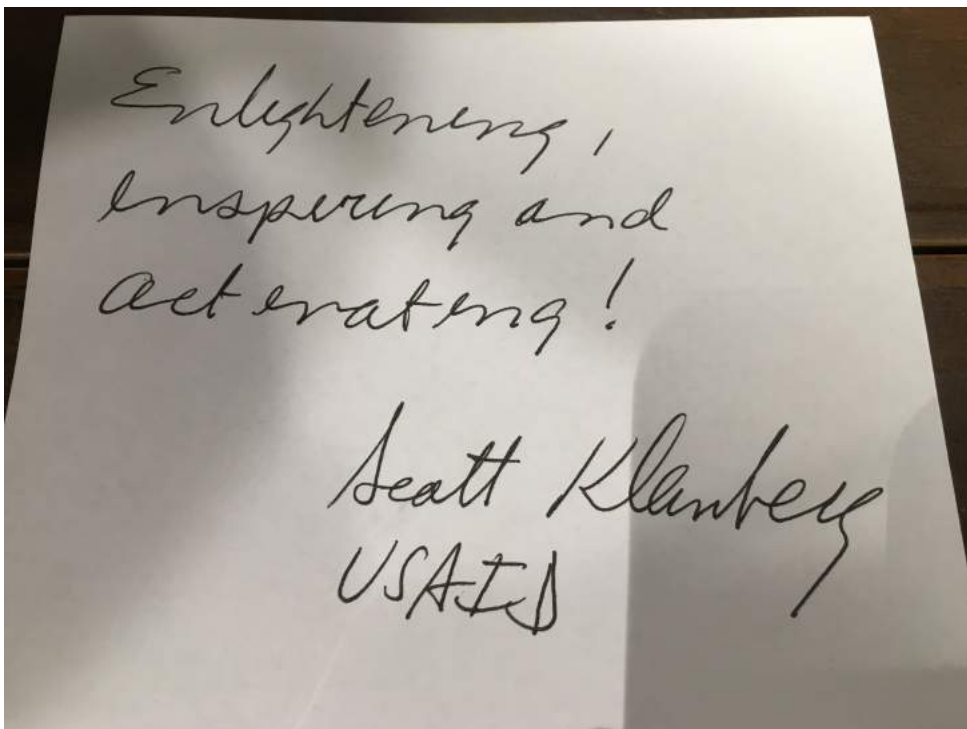 Enlightening,
inspiring and
activating!
Scott Kleinberg
USAID